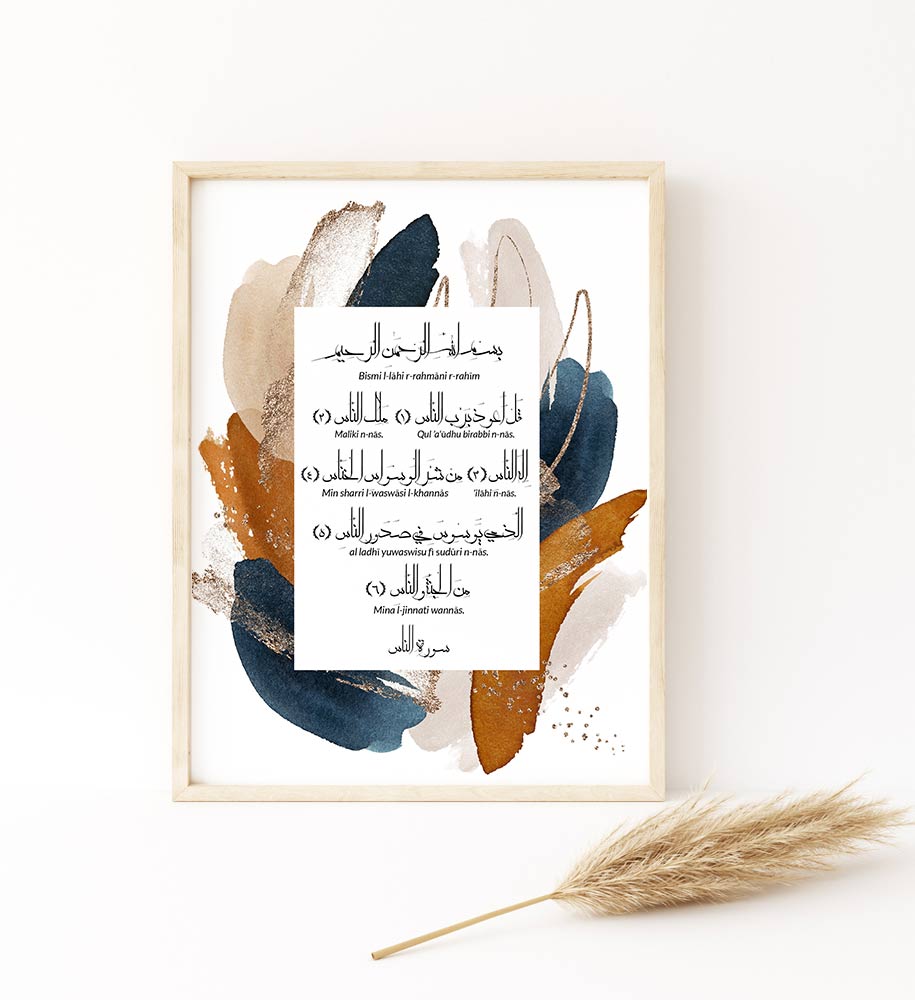 بسم الله الرحمن الرحيم
Bismi l-lāhi r-rahmāni r-rahīm
قل اعوذ برب الناس (١) ملك الناس (٢)
Qul 'a'ūdhu birabbi n-nās. Maliki n-nās.
إله الناس (٣) من شر الوسواس الخناس (٤)
'ilāhi n-nās. Min sharri l-waswāsi l-khannās
الذي يوسوس في صدور الناس (٥)
al ladhī yuwaswisu fī sudūri n-nās.
من الجنة و الناس (٦)
Mina l-jinnati wannās.
سورة الناس